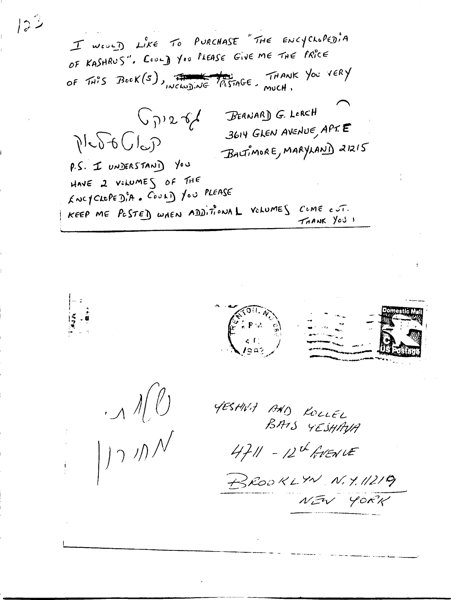 123
I WOULD LIKE TO PURCHASE "THE ENCYCLOPEDIA
OF KASHRUS". COULD YOU PLEASE GIVE ME THE PRICE
OF THIS BOOK(S), INCLUDING POSTAGE. THANK YOU VERY
MUCH.
BERNARD G. LORCH
3614 GLEN AVENUE, APT. E
BALTIMORE, MARYLAND 21215
P.S. I UNDERSTAND YOU
HAVE 2 VOLUMES OF THE
ENCYCLOPEDIA. COULD YOU PLEASE
KEEP ME POSTED WHEN ADDITIONAL VOLUMES COME OUT.
THANK YOU!
TRENTON, NJ
PM
Domestic Mail
US Postage
שלחתי
מחירון
YESHIVA AND KOLLEL
BAIS YESHAYA
4711 - 12th AVENUE
BROOKLYN N.Y. 11219
NEW YORK